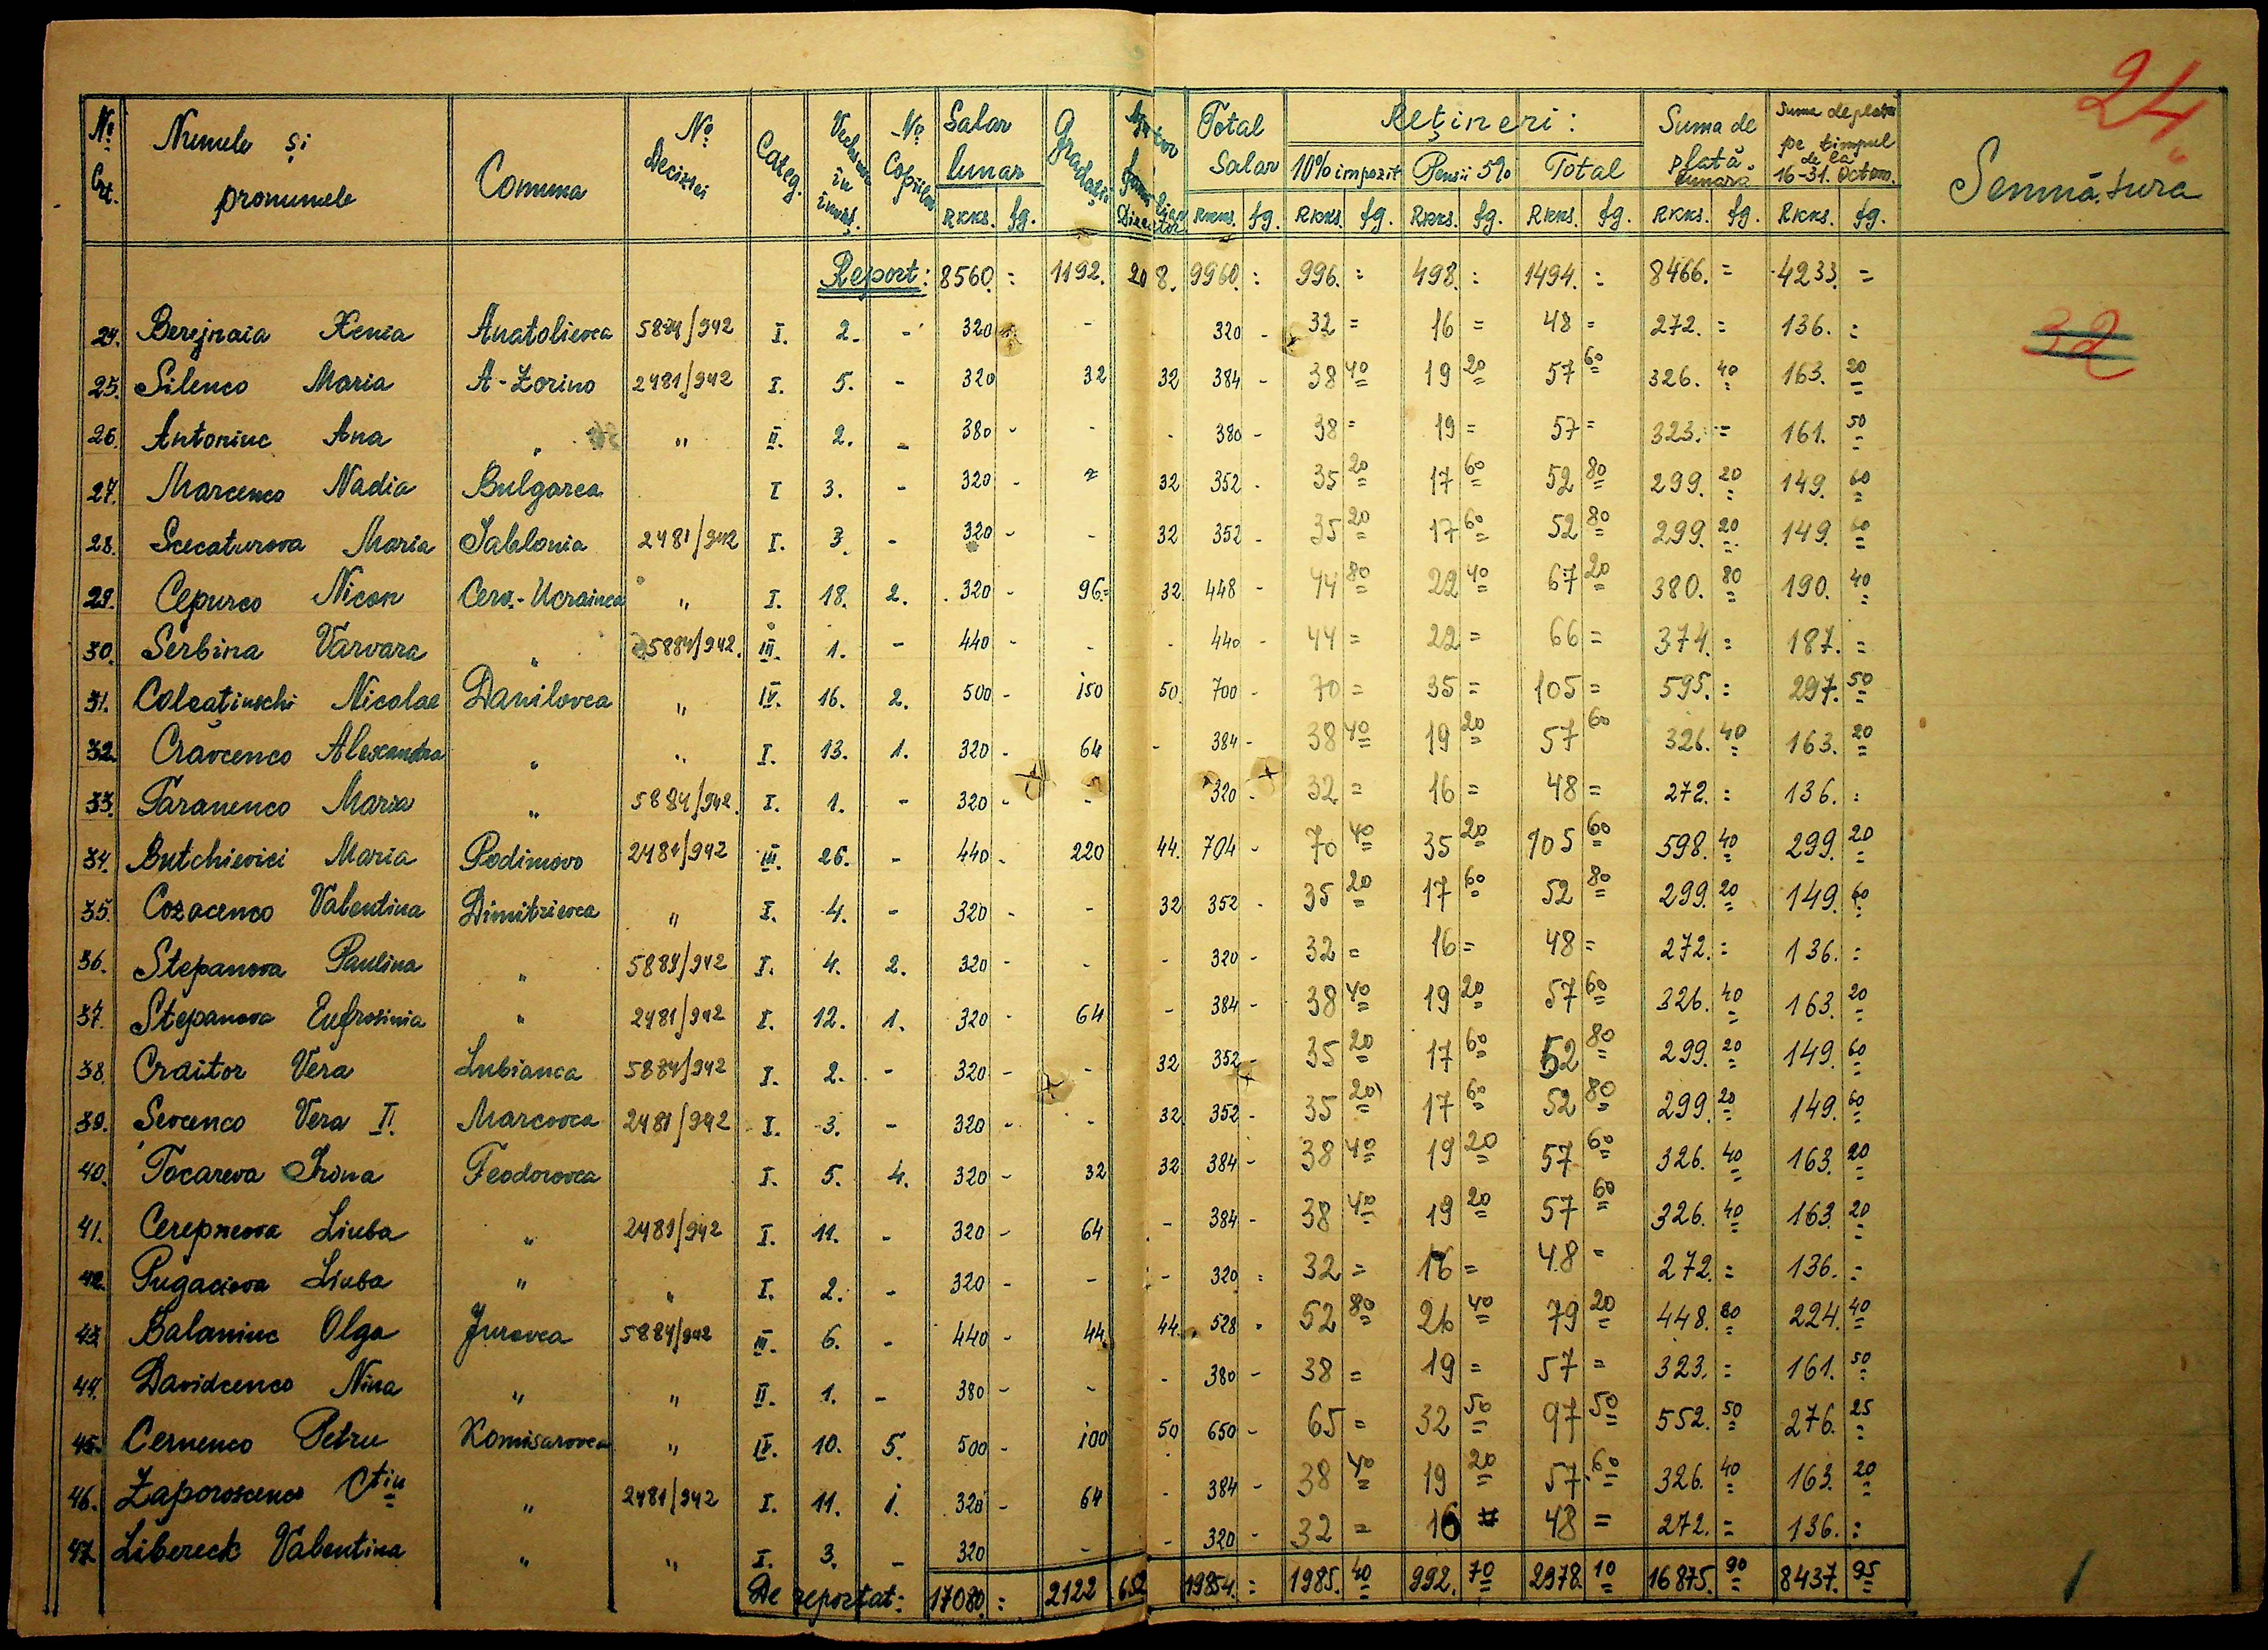 24
No Crt. Numele și pronumele Comuna No Deciziei Categ. Vechime în învăț. No Copiilor Salar lunar Gradații Total Salar Rețineri: Suma de plată lunară Suma de plată pe timpul de la 16-31. Octom. Semnătura
10% impozit Pensii 5% Total
RKKS. fg. RKKS. fg. RKKS. fg. RKKS. fg. RKKS. fg. RKKS. fg. RKKS. fg.
Report: 8560. = 1192. 208. 9960. = 996. = 498. = 1494. = 8466. = 4233. =
24. Berejnaia Xenia Anatolievca 5884/942 I. 2. - 320 - - 320 - 32 = 16 = 48 = 272. = 136. =
32
25. Silenco Maria A-Zorino 2481/942 I. 5. - 320 32 32 384 - 38 40 19 20 57 60 326. 40 163. 20
26. Antoniuc Ana " " II. 2. - 380 - - - 380 - 38 = 19 = 57 = 323. = 161. 50
27. Marcenco Nadia Bulgarca I 3. - 320 - 32 352 - 35 20 17 60 52 80 299. 20 149. 60
28. Scecaturova Maria Iablonia 2481/942 I. 3. - 320 - - 32 352 - 35 20 17 60 52 80 299. 20 149. 60
29. Cepurco Nicon Cerv.-Ucrainca " I. 18. 2. 320 - 96= 32 448 - 44 80 22 40 67 20 380. 80 190. 40
30. Serbina Varvara " 5884/942. III. 1. - 440 - - - 440 - 44 = 22 = 66 = 374. = 187. =
31. Colcatinschi Nicolae Danilovca " IV. 16. 2. 500 - 150 50. 700 - 70 = 35 = 105 = 595. = 297. 50
32. Cravcenco Alexandra " " I. 13. 1. 320 - 64 - 384 - 38 40 19 20 57 60 326. 40 163. 20
33. Taranenco Maria " 5884/942. I. 1. - 320 - - 320 - 32 = 16 = 48 = 272. = 136. =
34. Butchievici Maria Podimovo 2481/942 III. 26. - 440 - 220 44. 704 - 70 40 35 20 105 60 598. 40 299. 20
35. Cozacenco Valentina Dimitrievca " I. 4. - 320 - - 32 352 - 35 20 17 60 52 80 299. 20 149. 60
36. Stepanova Paulina " 5884/942 I. 4. 2. 320 - - - 320 - 32 = 16 = 48 = 272. = 136. =
37. Stepanova Eufrosinia " 2481/942 I. 12. 1. 320 - 64 - 384 - 38 40 19 20 57 60 326. 40 163. 20
38. Craitor Vera Lubianca 5884/942 I. 2. - 320 - - 32 352 - 35 20 17 60 52 80 299. 20 149. 60
39. Sevcenco Vera II. Marcovca 2481/942 I. 3. - 320 - - 32 352 - 35 20 17 60 52 80 299. 20 149. 60
40. Tocareva Irona Feodorovca I. 5. 4. 320 - 32 32 384 - 38 40 19 20 57 60 326. 40 163. 20
41. Cerepneova Liuba " 2481/942 I. 11. - 320 - 64 - 384 - 38 40 19 20 57 60 326. 40 163. 20
42. Pugaciova Liuba " " I. 2. - 320 - - - 320 = 32 = 16 = 48 = 272. = 136. =
43. Balaniuc Olga Jurovca 5884/942 III. 6. - 440 - 44 44. 528 - 52 80 26 40 79 20 448. 80 224. 40
44. Davidcenco Nina " " II. 1. - 380 - - - 380 - 38 = 19 = 57 = 323. = 161. 50
45. Cernenco Petru Komisarovca " IV. 10. 5. 500 - 100 50 650 - 65 = 32 50 97 50 552. 50 276. 25
46. Zaporoscenco Ctin " 2481/942 I. 11. 1. 320 - 64 - 384 - 38 40 19 20 57 60 326. 40 163. 20
47. Libereck Valentina " " I. 3. - 320 - - 320 - 32 = 16 = 48 = 272. = 136. =
De reportat: 17080. = 2122 652 19854. = 1985. 40 992. 70 2978. 10 16875. 90 8437. 95